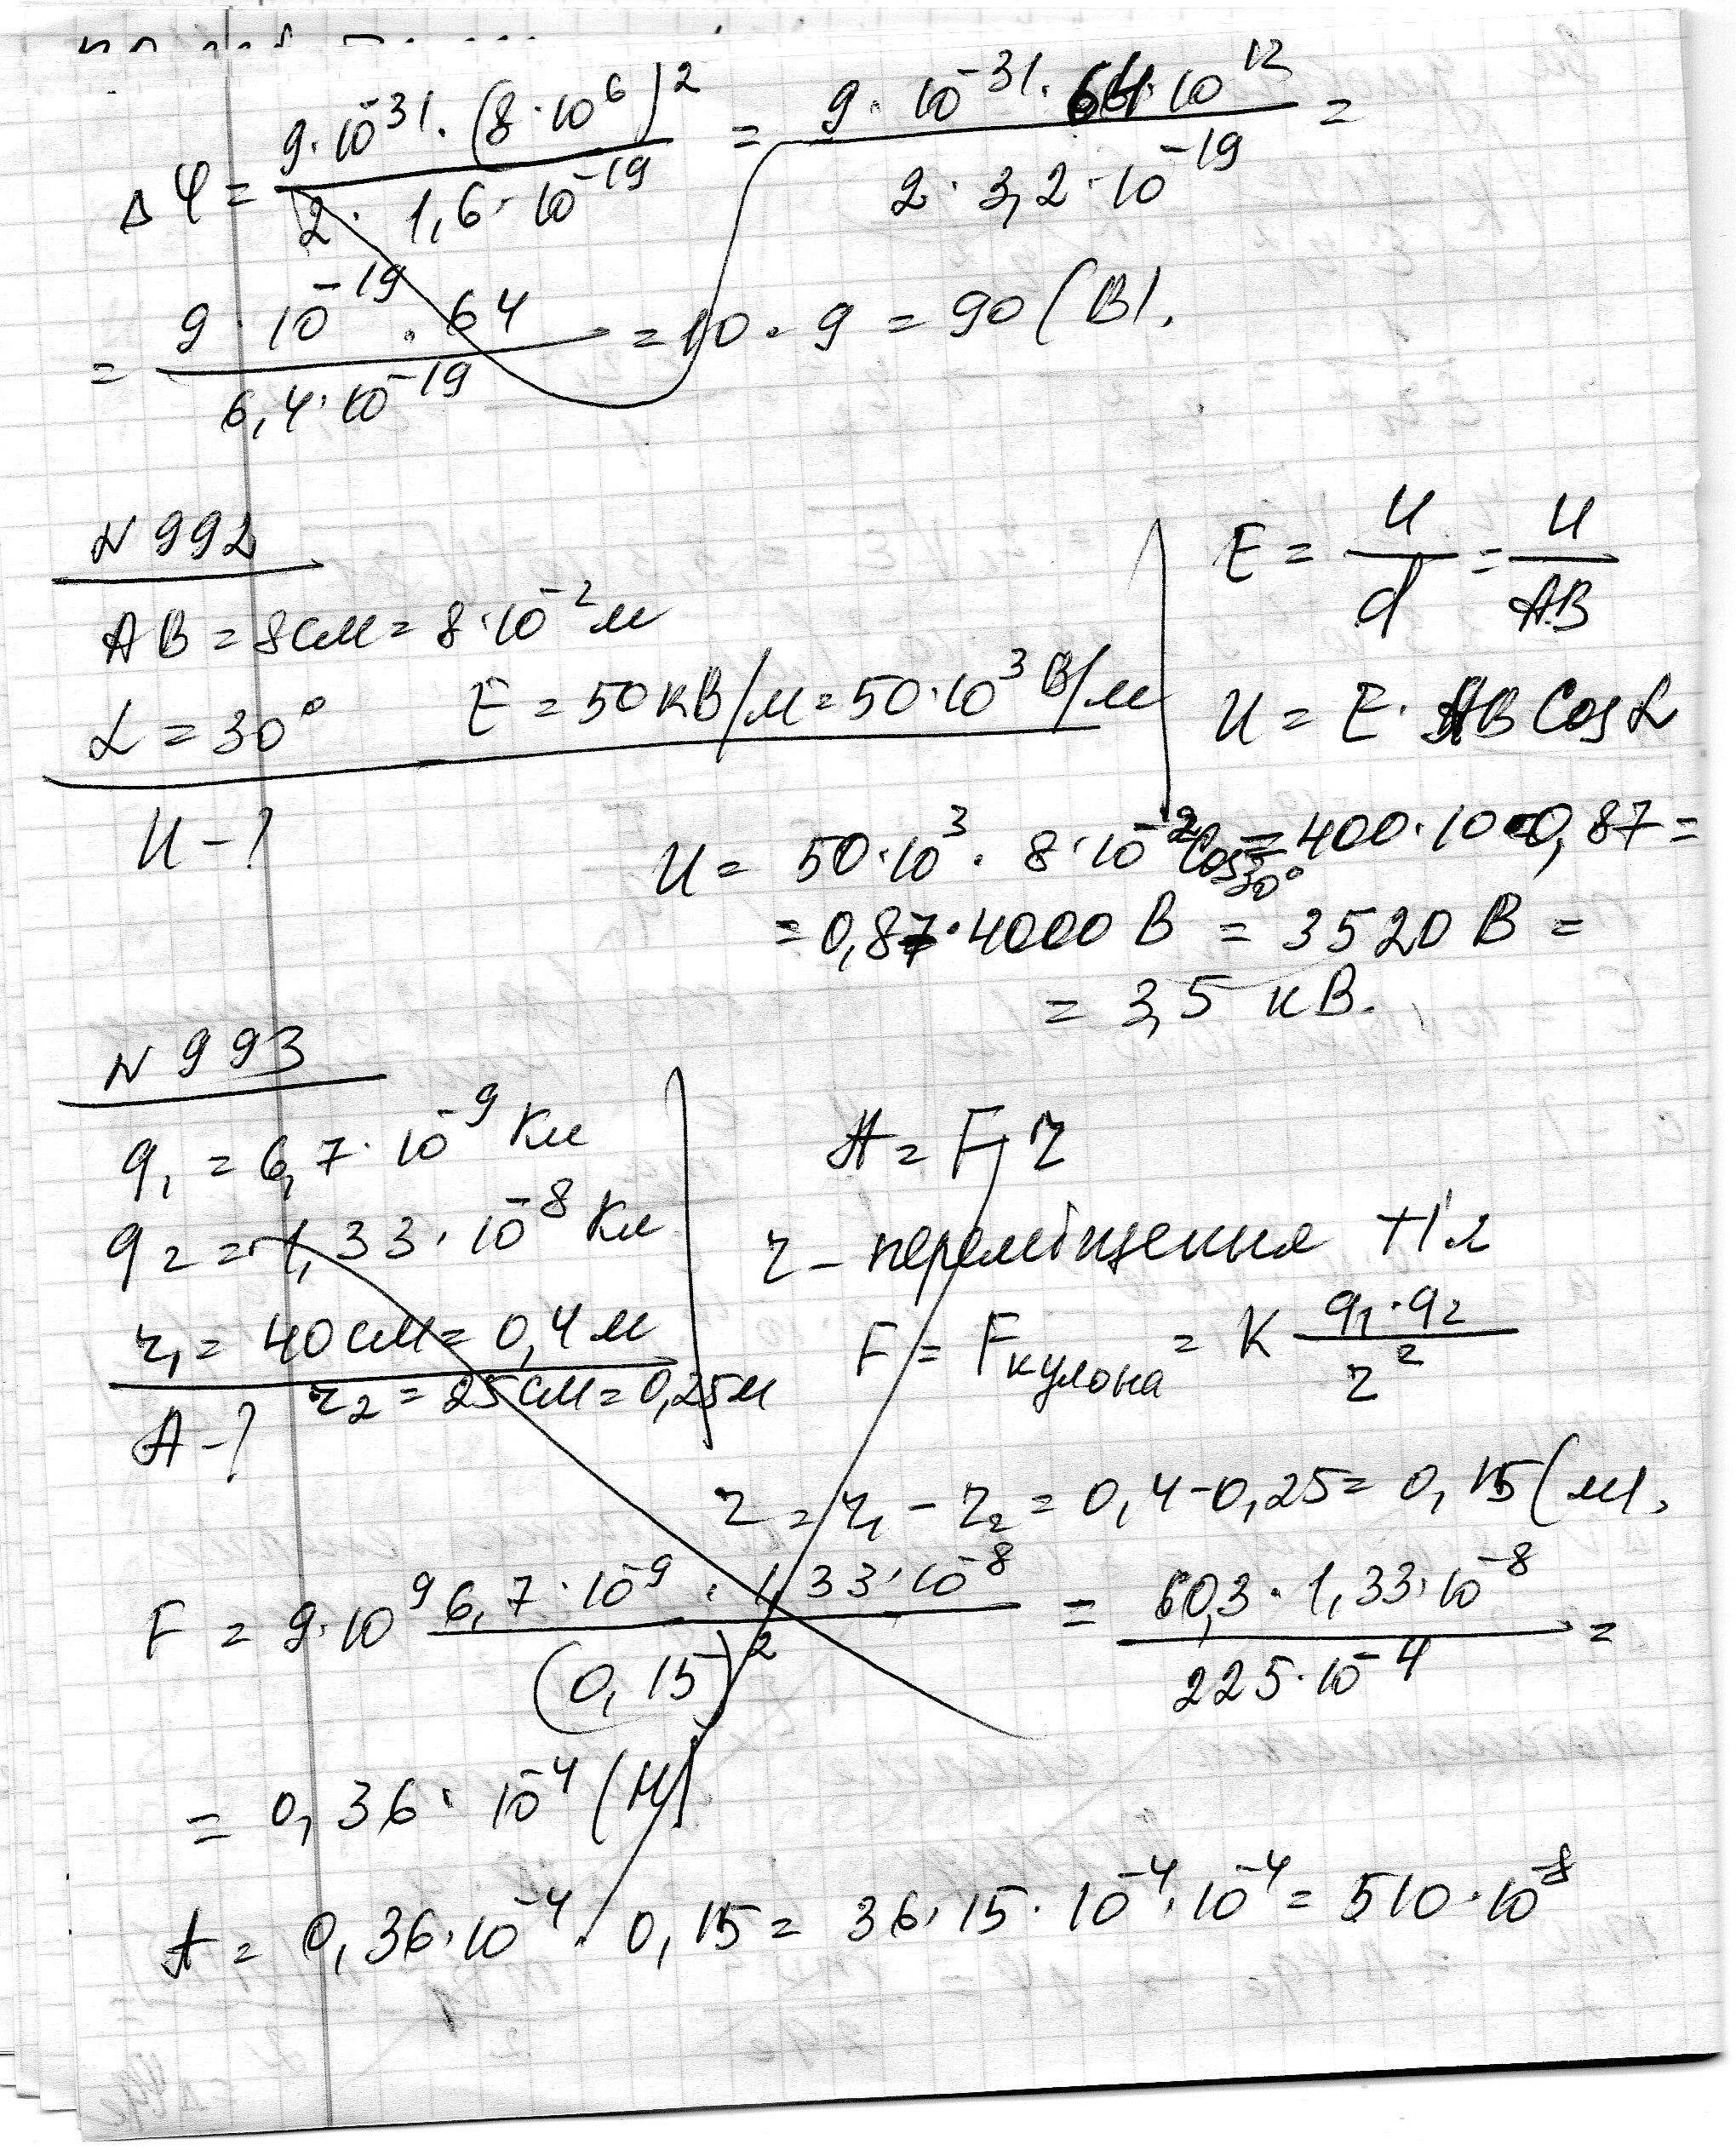 Δφ = 9·10^-31·(8·10^6)^2 / 2·1,6·10^-19 = 9·10^-31·64·10^12 / 2·3,2·10^-19 =
= 9·10^-19·64 / 6,4·10^-19 = 10·9 = 90 (В).
N 992
AB = 8см = 8·10^-2 м
α = 30° E = 50 кВ/м = 50·10^3 В/м
U - ?
E = U/d = U/AB
U = E·AB Cos α
U = 50·10^3·8·10^-2 Cos 30° = 400·10·0,87 =
= 0,87·4000 В = 3520 В =
= 3,5 кВ.
N 993
q1 = 6,7·10^-9 Кл
q2 = 1,33·10^-8 Кл
r1 = 40 см = 0,4 м
r2 = 25 см = 0,25 м
A - ?
A = F r
r - переміщення
F = Fкулона = K q1·q2 / r^2
r = r1 - r2 = 0,4 - 0,25 = 0,15 (м).
F = 9·10^9 6,7·10^-9·1,33·10^-8 / (0,15)^2 = 60,3·1,33·10^-8 / 225·10^-4 =
= 0,36·10^-4 (Н)
A = 0,36·10^-4·0,15 = 36·15·10^-4·10^-4 = 510·10^-8